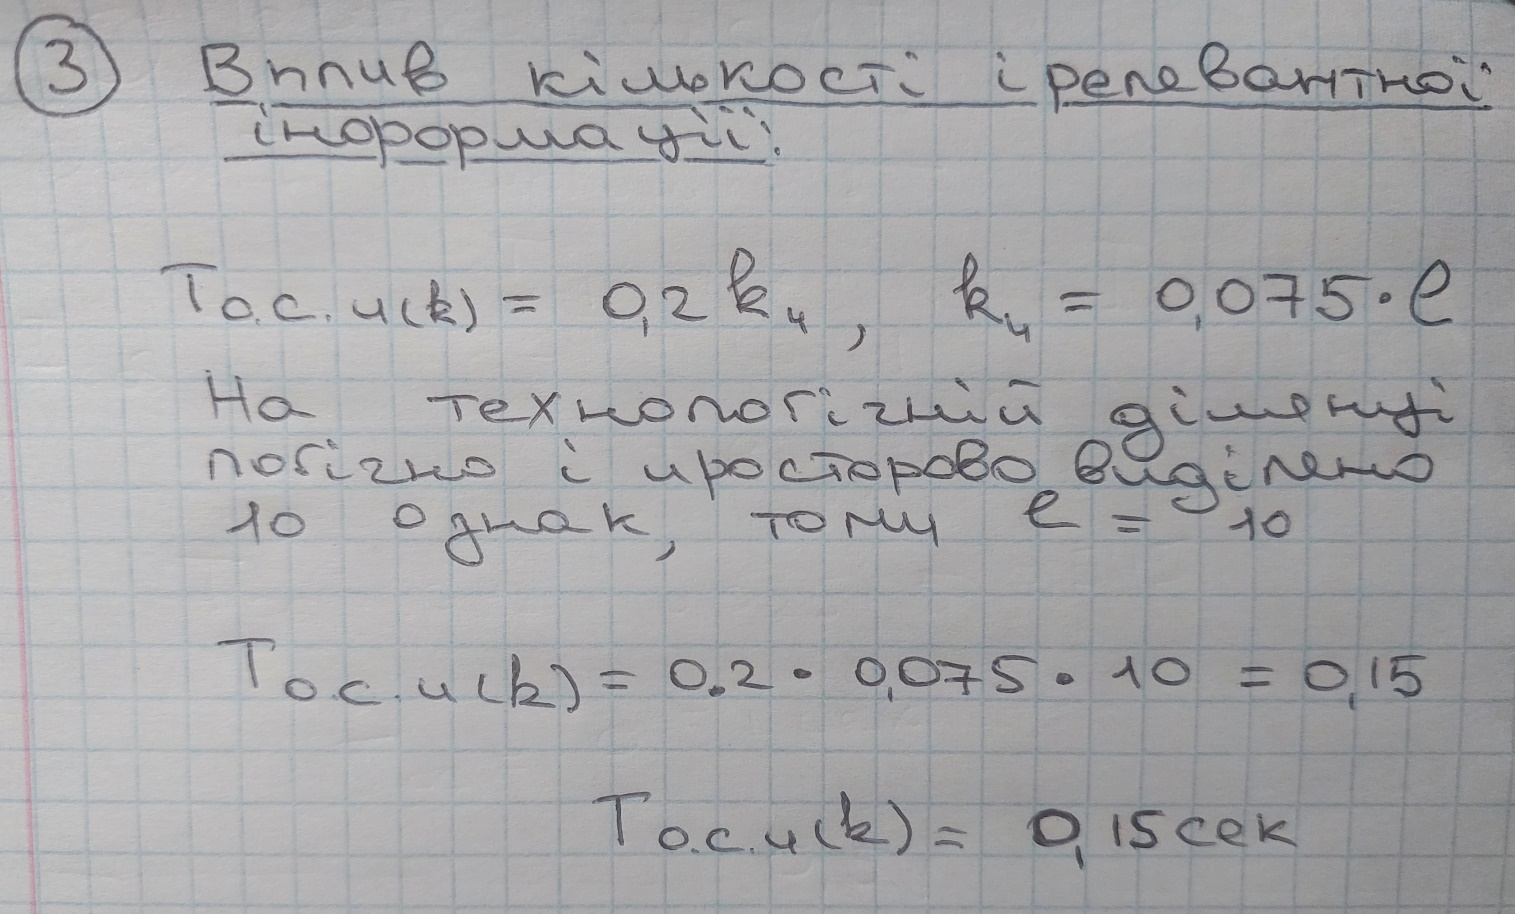 3 Вплив кількості і релевантної
інформації:
То.с.ч(k) = 0,2 kч, kч = 0,075·l
На технологічній ділянці
логічно і просторово виділено
10 ознак, тому l = 10
То.с.ч(k) = 0.2 · 0,075 · 10 = 0,15
То.с.ч(k) = 0,15 сек